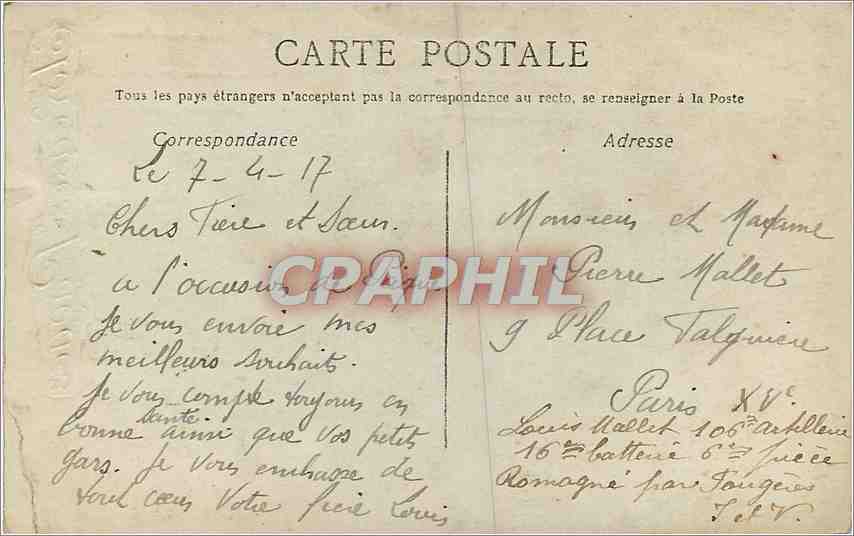 CARTE POSTALE
Tous les pays étrangers n'acceptent pas la correspondance au recto, se renseigner à la Poste
Correspondance
Le 7-4-17
Chers Frère et Sœur.
a l'occasion de Pâque
Je vous envoie mes
meilleurs souhaits.
Je vous compte toujours en
bonne santé ainsi que vos petits
gars. Je vous embrasse de
tout cœur Votre frère Louis
Adresse
Monsieur et Madame
Pierre Mallet
9 Place Falguière
Paris XVe
Louis Mallet 106e artillerie
16me batterie 6me pièce
Romagné par Fougères
I et V.
CPAPHIL